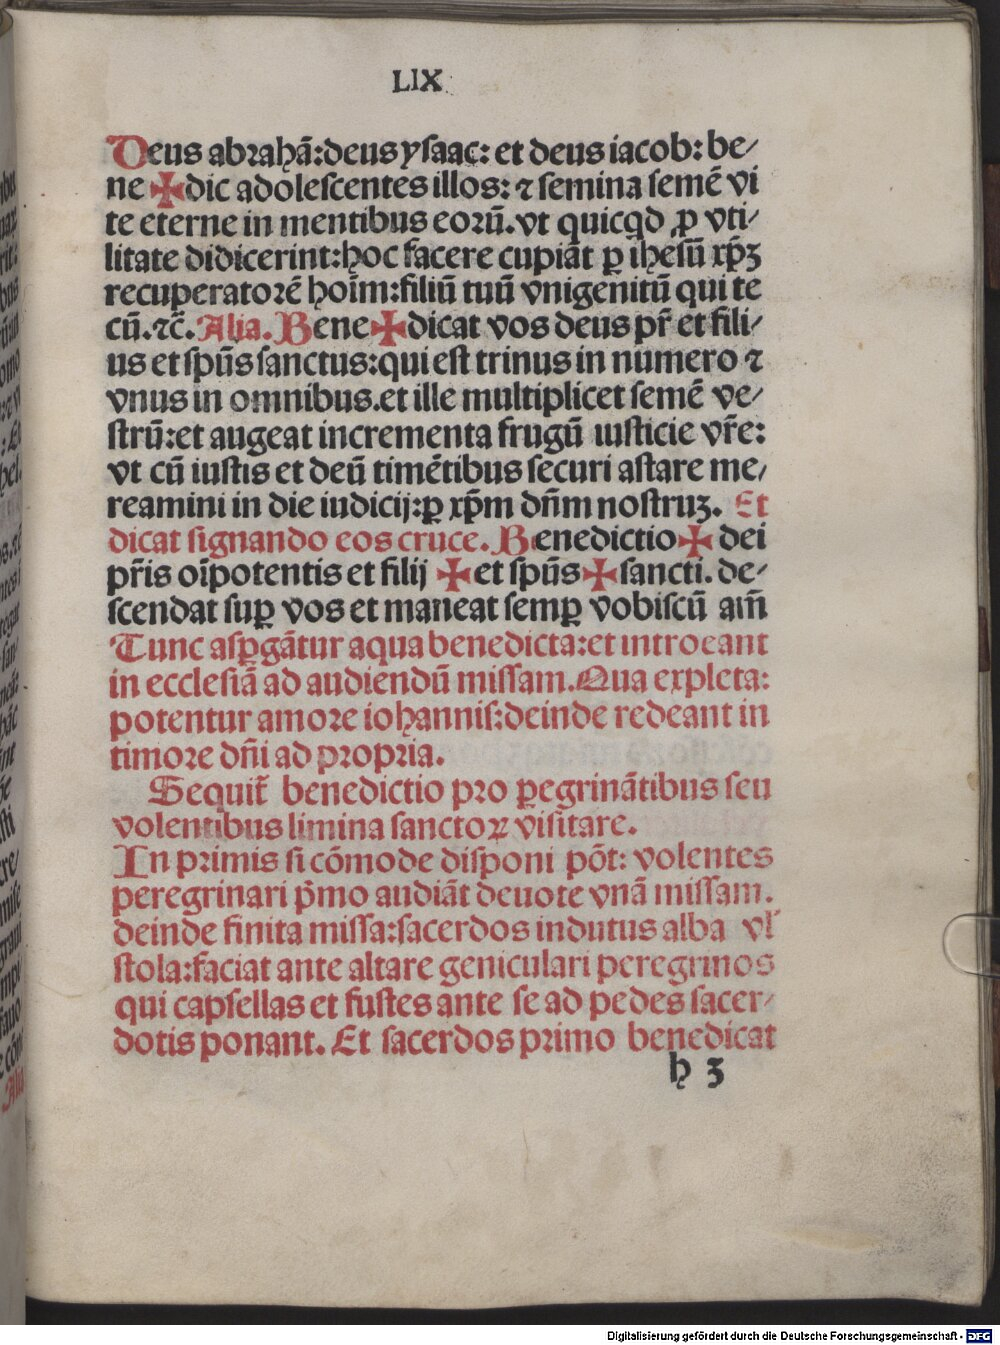 LIX
Deus abrahã:deus ysaac: et deus iacob: be⸗
ne ✠dic adolescentes illos: ⁊ semina semẽ vi
te eterne in mentibus eorũ.vt quicqd ꝓ vti⸗
litate didicerint:hoc facere cupiãt ꝑ ihesũ xp̃ꝫ
recuperatorẽ hoĩm:filiũ tuũ vnigenitũ qui te
cũ.⁊c̃. Alia. Bene✠dicat vos deus pr̃ et fili⸗
us et sp̃us sanctus:qui est trinus in numero ⁊
vnus in omnibus.et ille multiplicet semẽ ve⸗
strũ:et augeat incrementa frugũ iusticie vr̃e:
vt cũ iustis et deũ timẽtibus securi astare me⸗
reamini in die iudicij:ꝑ xp̃m dñm nostruꝫ. Et
dicat signando eos cruce. Benedictio✠ dei
pr̃is oĩpotentis et filij ✠et sp̃us✠sancti. de⸗
scendat suꝑ vos et maneat semꝑ vobiscũ am̃
Tunc asꝑgãtur aqua benedicta:et introeant
in ecclesiã ad audiendũ missam.Qua expleta:
potentur amore iohannis:deinde redeant in
timore dñi ad propria.
Sequit̃ benedictio pro ꝑegrinãtibus seu
volentibus limina sanctoꝝ visitare.
In primis si cõmode disponi põt: volentes
peregrinari p̃mo audiãt deuote vnã missam.
deinde finita missa:sacerdos indutus alba vl̃
stola:faciat ante altare geniculari peregrinos
qui capsellas et fustes ante se ad pedes sacer⸗
dotis ponant. Et sacerdos primo benedicat
h 3
Digitalisierung gefördert durch die Deutsche Forschungsgemeinschaft - DFG